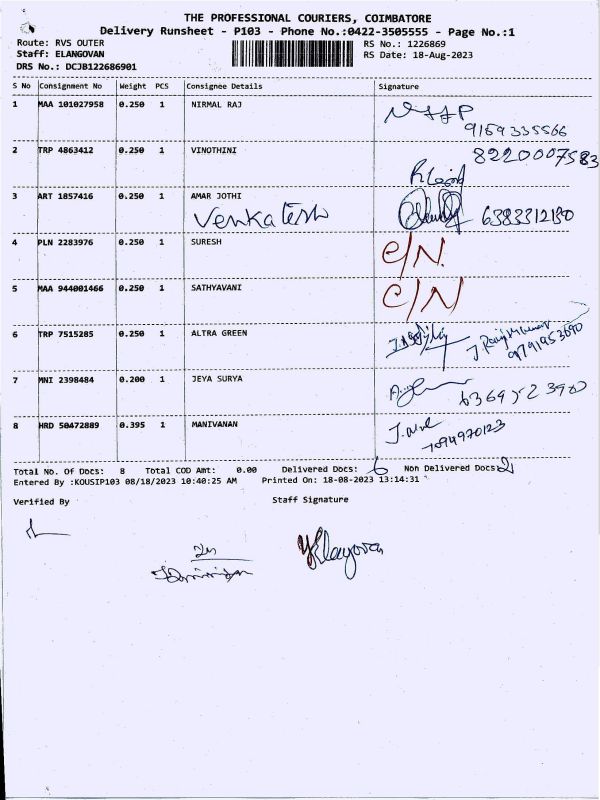 THE PROFESSIONAL COURIERS, COIMBATORE
Delivery Runsheet - P103 - Phone No.:0422-3505555 - Page No.:1
Route: RVS OUTER RS No.: 1226869
Staff: ELANGOVAN RS Date: 18-Aug-2023
DRS No.: DCJB122686901
S No Consignment No Weight PCS Consignee Details Signature
1 MAA 101027958 0.250 1 NIRMAL RAJ
9159335566
2 TRP 4863412 0.250 1 VINOTHINI 8220007583
3 ART 1857416 0.250 1 AMAR JOTHI
Venkatesh 6383312180
4 PLN 2283976 0.250 1 SURESH C/N.
5 MAA 944001466 0.250 1 SATHYAVANI C/N
6 TRP 7515285 0.250 1 ALTRA GREEN
9791953690
7 MNI 2398484 0.200 1 JEYA SURYA
8 HRD 50472889 0.395 1 MANIVANAN
Total No. Of Docs: 8 Total COD Amt: 0.00 Delivered Docs: 6 Non Delivered Docs: 2
Entered By :KOUSIP103 08/18/2023 10:40:25 AM Printed On: 18-08-2023 13:14:31
Verified By Staff Signature